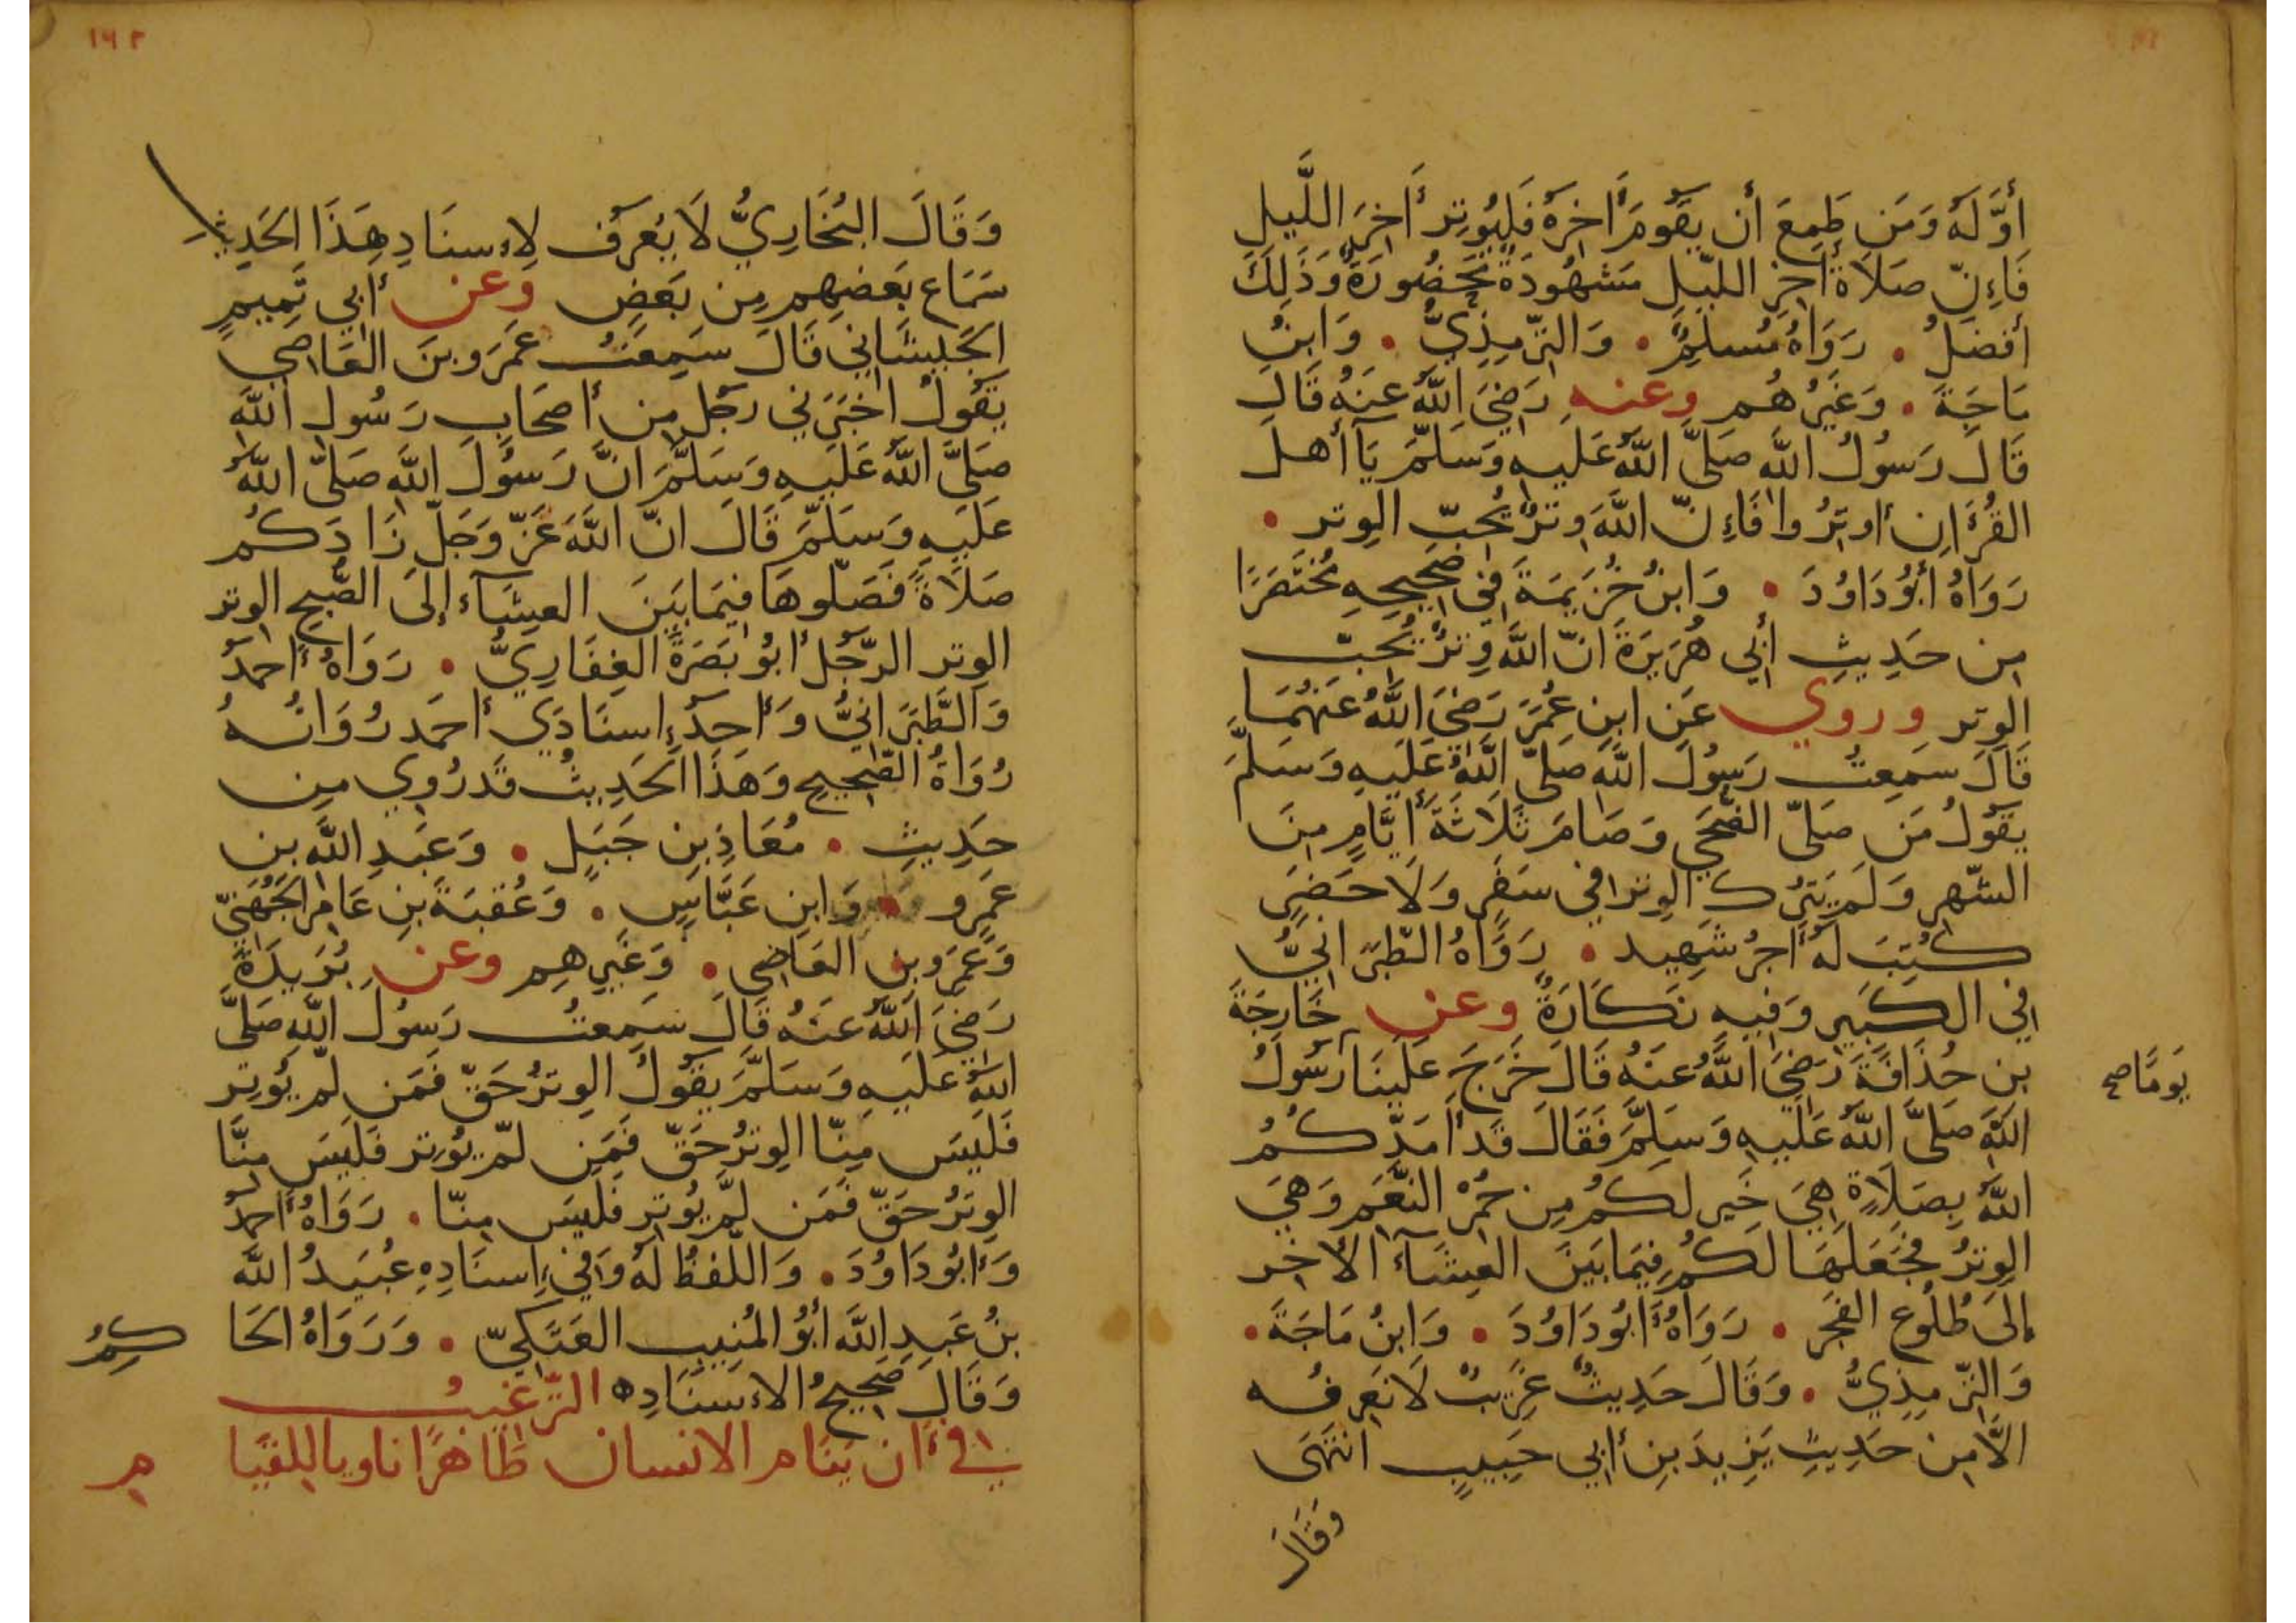 أَوَّلَهُ وَمَن طَمِعَ أَن يَقُومَ أَاخِرَهُ فَليُوتِر أَاخِرَ اللَّيلِ
فَاءِنّ صَلَاةَ أَاخِرِ اللّيلِ مَشهُودَةٌ مَحضُورَةٌ وَذَلِكَ
أَفضَلُ . رَوَاهُ مُسلِمٌ . وَالتِّرمِذِيُّ . وَابنُ
مَاجَةَ . وَغَيرُهُم وعنه رَضِيَ اللَّهُ عَنهُ قَالَ
قَالَ رَسُولُ اللَّه صَلَّى اللَّهُ عَلَيهِ وَسَلَّمَ يَآ أَهلَ
القُرءَانِ أَوتِرُوا فَاءِنّ اللَّهَ وِترٌ يُحِبّ الوِتر .
رَوَاهُ أَبُو دَاوُدَ . وَابنُ خُزَيمَةَ فِي صَحِيحِهِ مُختَصَرًا
مِن حَدِيثِ أَبِي هُرَيرَةَ انّ اللَّهَ وِترٌ يُحِبّ
الوِتر وروي عَنِ ابنِ عُمَرَ رَضِيَ اللَّهُ عَنهُمَا
قَالَ سَمِعتُ رَسُولَ اللَّه صَلَّى اللَّهُ عَلَيهِ وَسَلَّمَ
يَقُولُ مَن صَلّى الضّحَى وَصَامَ ثَلَاثَةَ أَيَّامٍ مِنَ
الشّهرِ وَلَم يَترُكِ الوِترَ فِي سَفَرٍ وَلَا حَضَرٍ
كُتِبَ لَهُ أَجرُ شَهِيد . رَوَاهُ الطّبَرَانِيُّ
فِي الكَبِيرِ وَفِيهِ نَكَارَةٌ وعن خَارِجَةَ
بنِ حُذَافَةَ رَضِيَ اللَّهُ عَنهُ قَالَ خَرَجَ عَلَينَا رَسُولُ
يَومًا صح
اللَّهِ صَلَّى اللَّهُ عَلَيهِ وَسَلَّمَ فَقَالَ قَد أَمَدّكُمُ
اللَّهُ بِصَلَاةٍ هِيَ خَير لَكُم مِن حُمرِ النّعَم وَهِيَ
الوِترُ فَجَعَلَهَا لَكُم فِيمَا بَينَ العِشَآءِ الأخِر
إِلَى طُلُوعِ الفَجرِ . رَوَاهُ أَبُو دَاوُدَ . وَابنُ مَاجَةَ .
وَالتِّرمِذِيُّ . وَقَالَ حَدِيثٌ غَرِيبٌ لَا نَعرِفُه
الَّا مِن حَدِيثِ يَزِيدَ بنِ أَبِي حَبِيبٍ انتَهَى
وَقَالَ
١٩٢
وَقَالَ البُخَارِيُّ لَا يُعرَف لِاءِسنَادِ هَذَا الحَدِيثِ
سَمَاع بَعضِهِم مِن بَعضٍ وعن أَبِي تَمِيمٍ
الجَيشَانِي قَالَ سَمِعتُ عَمرَو بنَ العَاصِي
يَقُولُ اخبَرَنِي رَجُل مِن أَصحَابِ رَسُولِ اللَّه
صَلَّى اللَّهُ عَلَيهِ وَسَلَّمَ انَّ رَسُولَ اللَّهِ صَلَّى اللَّهُ
عَلَيهِ وَسَلَّمَ قَالَ انّ اللَّهَ عَزّ وَجَلّ زَادَكُم
صَلَاةً فَصَلّوهَا فِيمَا بَينَ العِشَآءِ إِلَى الصُّبحِ الوتر
الوِتر الرّجُل أَبُو بَصرَةَ الغِفَارِيُّ . رَوَاهُ أَحمَدُ
وَالطَّبَرَانِيُّ وَأَحَدُ إِسنَادَي أَحمَد رُوَاتُهُ
رُوَاةُ الصّحِيحِ وَهَذَا الحَدِيثُ قَد رُوِي مِن
حَدِيثِ . مُعَاذِ بنِ جَبَلٍ . وَعَبدِ اللَّه بنِ
عَمرٍو . وَابنِ عَبَّاسٍ . وَعُقبَةَ بنِ عَامِر الجُهَنِيّ
وَعَمرِو بنِ العَاصِي . وَغَيرِهِم وعن بُرَيدَةَ
رَضِيَ اللَّهُ عَنهُ قَالَ سَمِعتُ رَسُولَ اللَّهِ صَلَّى
اللَّهُ عَلَيهِ وَسَلَّمَ يَقُولُ الوِترُ حَقّ فَمَن لَم يُوتِر
فَلَيسَ مِنّا الوِترُ حَقّ فَمَن لَم يُوتِر فَلَيسَ مِنَّا
الوِترُ حَقّ فَمَن لَم يُوتِر فَلَيسَ مِنّا . رَوَاهُ أَحمَدُ
وَأَبُو دَاوُدَ . وَاللّفظُ لَهُ وَفِي إِسنَادِهِ عُبَيدُ اللَّه
بنُ عَبدِ اللَّه أَبُو المُنِيبِ العَتَكِيّ . وَرَوَاهُ الحَاكِمُ
وَقَالَ صَحِيحُ الاءِسنَادِ ه الترّغيبُ
في أن يَنَام الانسان طَاهرًا ناويا للقيام